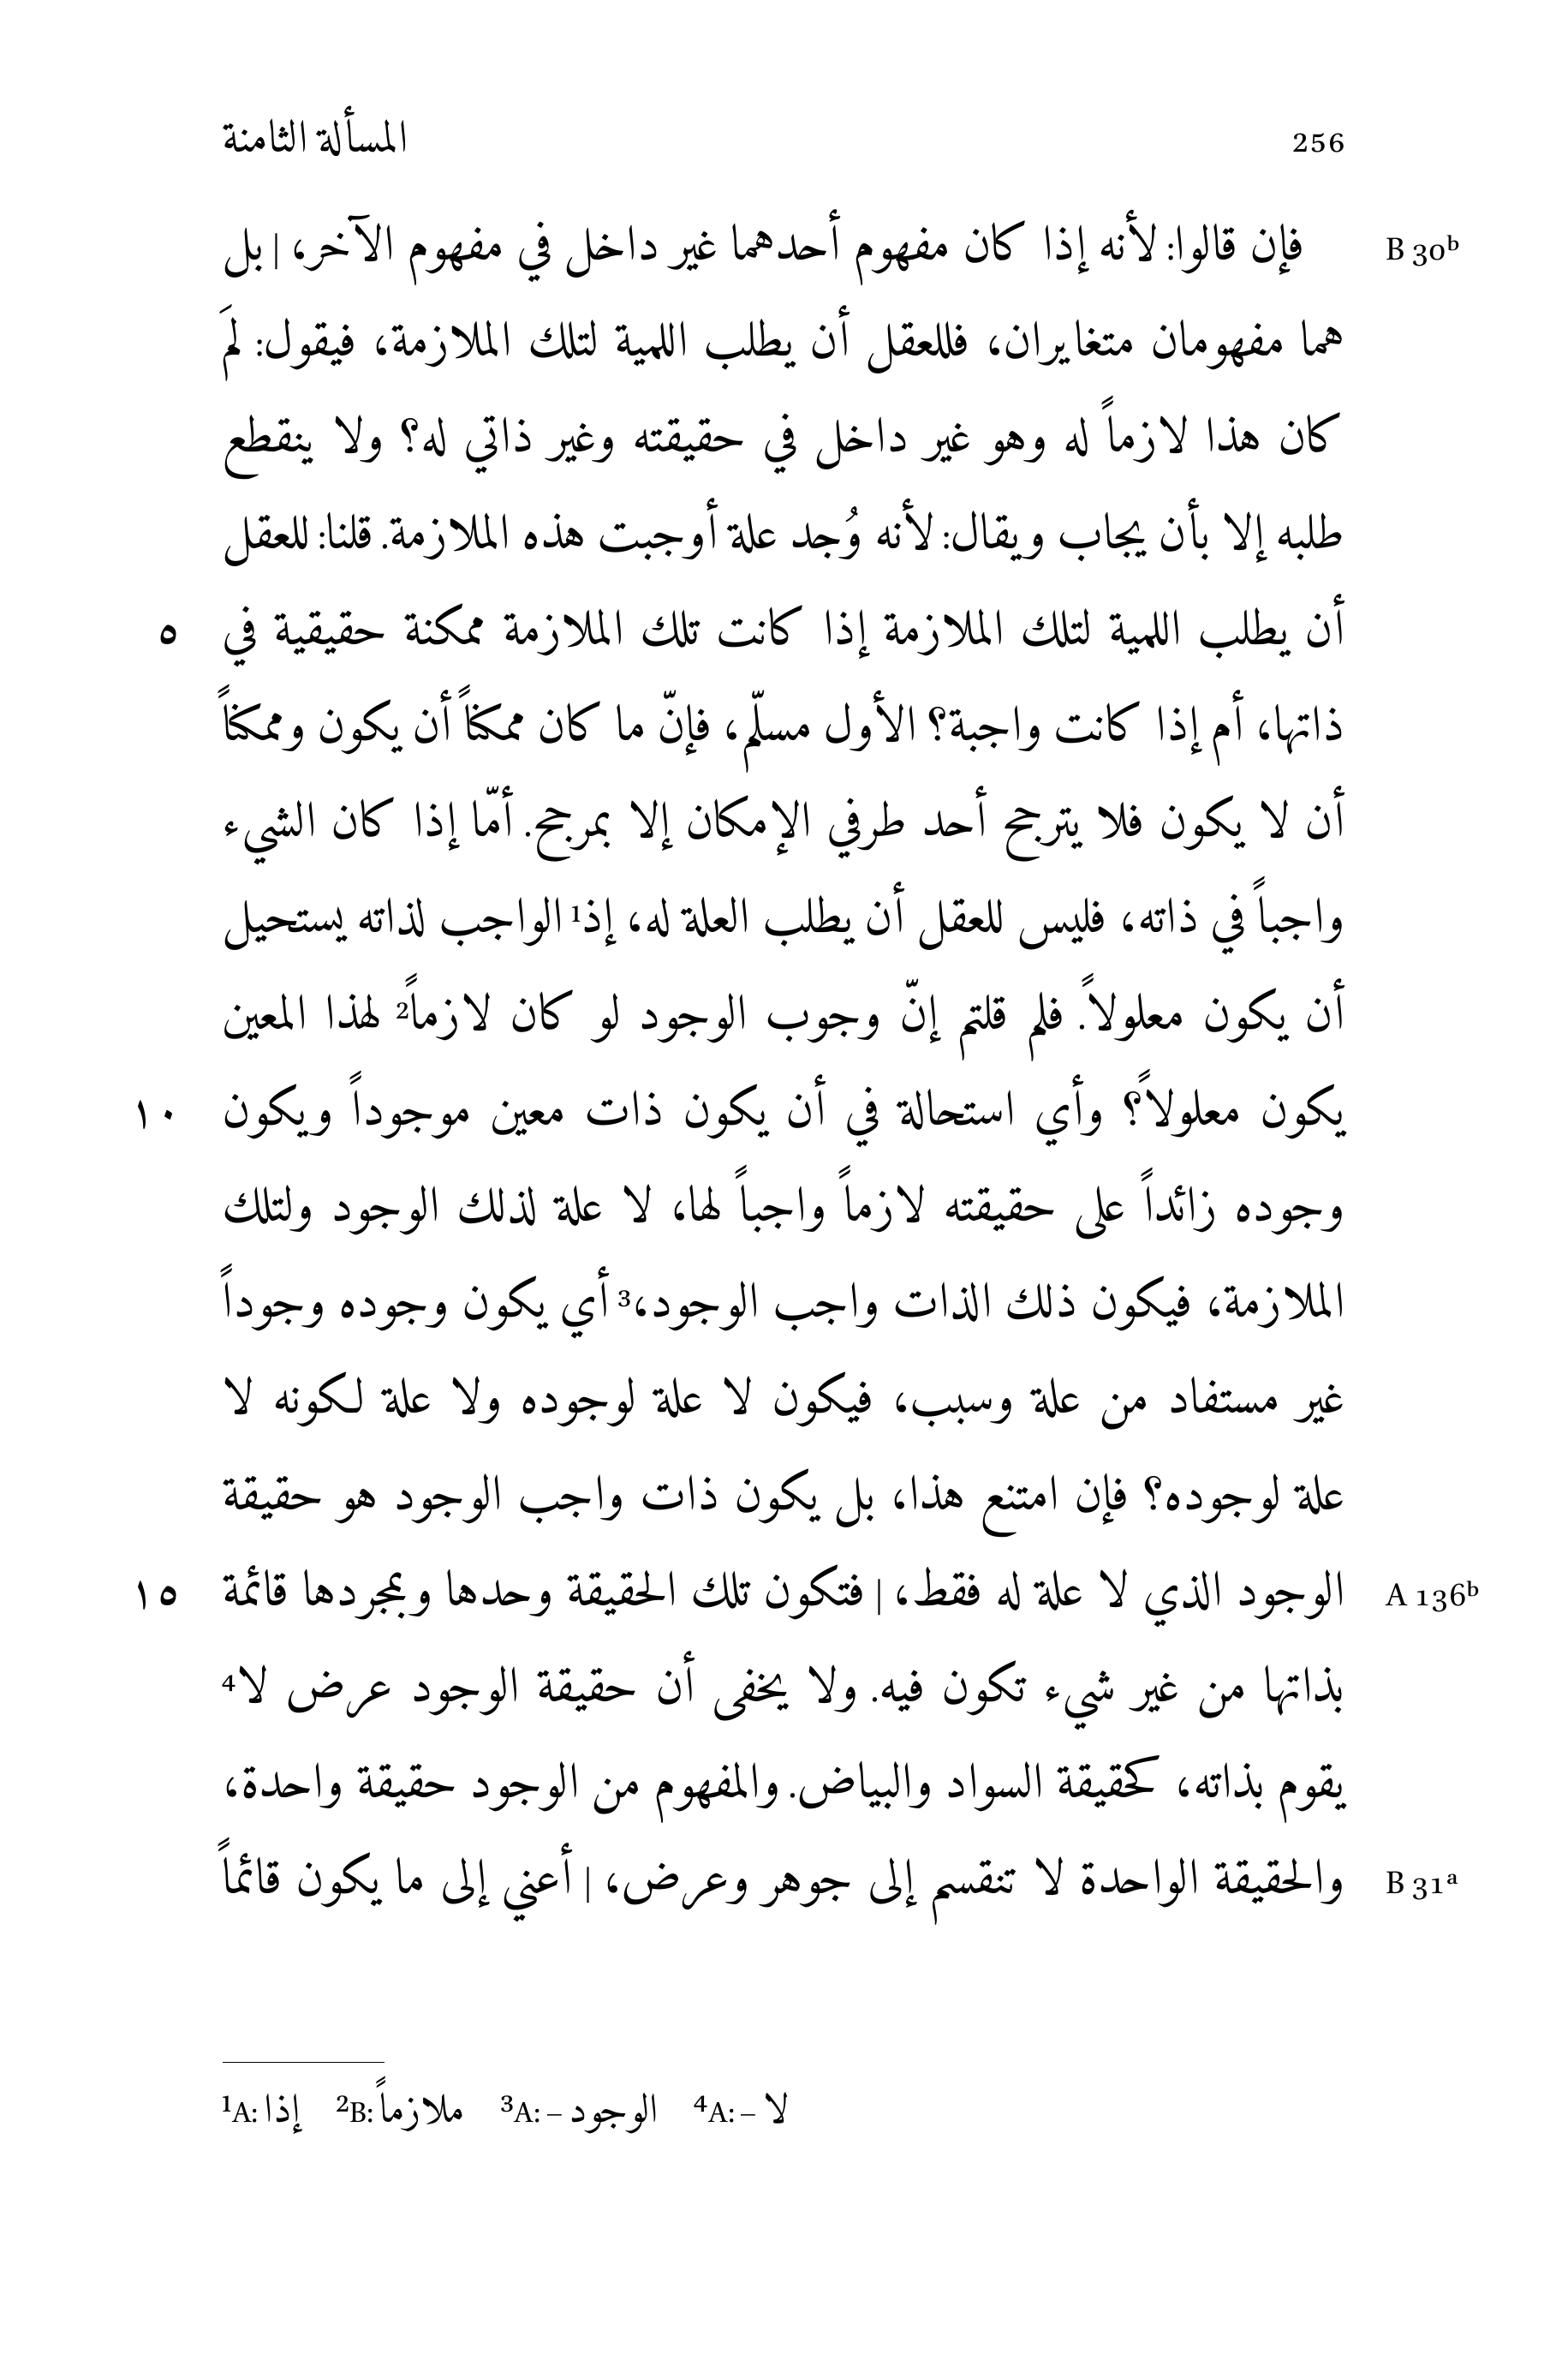 256 المسألة الثامنة
B 30ᵇ فإن قالوا: لأنه إذا كان مفهوم أحدهما غير داخل في مفهوم الآخر، | بل
هما مفهومان متغايران، فللعقل أن يطلب اللمية لتلك الملازمة، فيقول: لَم
كان هذا لازماً له وهو غير داخل في حقيقته وغير ذاتي له؟ ولا ينقطع
طلبه إلا بأن يجاب ويقال: لأنه وُجد علة أوجبت هذه الملازمة. قلنا: للعقل
أن يطلب اللمية لتلك الملازمة إذا كانت تلك الملازمة ممكنة حقيقية في ٥
ذاتها، أم إذا كانت واجبة؟ الأول مسلّم، فإنّ ما كان ممكناً أن يكون وممكناً
أن لا يكون فلا يترجح أحد طرفي الإمكان إلا بمرجح. أمّا إذا كان الشيء
واجباً في ذاته، فليس للعقل أن يطلب العلة له، إذ¹ الواجب لذاته يستحيل
أن يكون معلولاً. فلم قلتم إنّ وجوب الوجود لو كان لازماً² لهذا المعين
يكون معلولاً؟ وأي استحالة في أن يكون ذات معين موجوداً ويكون ١٠
وجوده زائداً على حقيقته لازماً واجباً لها، لا علة لذلك الوجود ولتلك
الملازمة، فيكون ذلك الذات واجب الوجود،³ أي يكون وجوده وجوداً
غير مستفاد من علة وسبب، فيكون لا علة لوجوده ولا علة لكونه لا
علة لوجوده؟ فإن امتنع هذا، بل يكون ذات واجب الوجود هو حقيقة
A 136ᵇ الوجود الذي لا علة له فقط، | فتكون تلك الحقيقة وحدها وبمجردها قائمة ١٥
بذاتها من غير شيء تكون فيه. ولا يخفى أن حقيقة الوجود عرض لا⁴
يقوم بذاته، كحقيقة السواد والبياض. والمفهوم من الوجود حقيقة واحدة،
B 31ᵃ والحقيقة الواحدة لا تنقسم إلى جوهر وعرض، | أعني إلى ما يكون قائماً
¹A: إذا ²B: ملازماً ³A: – الوجود ⁴A: – لا